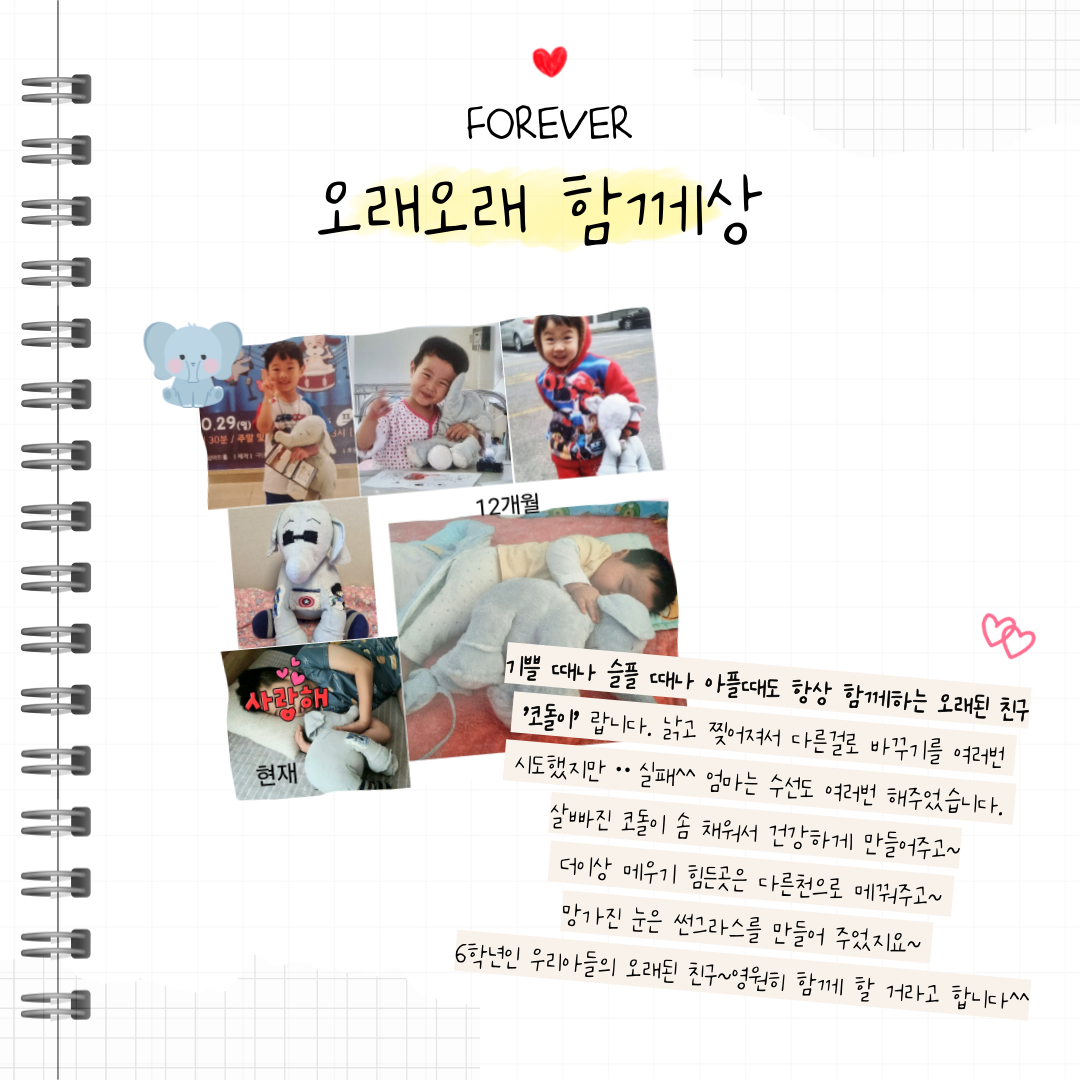 FOREVER
오래오래 함께상
0.29(월)
30분 / 주말 및
12개월
사랑해
현재
기쁠 때나 슬플 때나 아플때도 항상 함께하는 오래된 친구
'코돌이' 랍니다. 낡고 찢어져서 다른걸로 바꾸기를 여러번
시도했지만 •• 실패^^ 엄마는 수선도 여러번 해주었습니다.
살빠진 코돌이 솜 채워서 건강하게 만들어주고~
더이상 메우기 힘든곳은 다른천으로 메꿔주고~
망가진 눈은 썬그라스를 만들어 주었지요~
6학년인 우리아들의 오래된 친구~영원히 함께 할 거라고 합니다^^